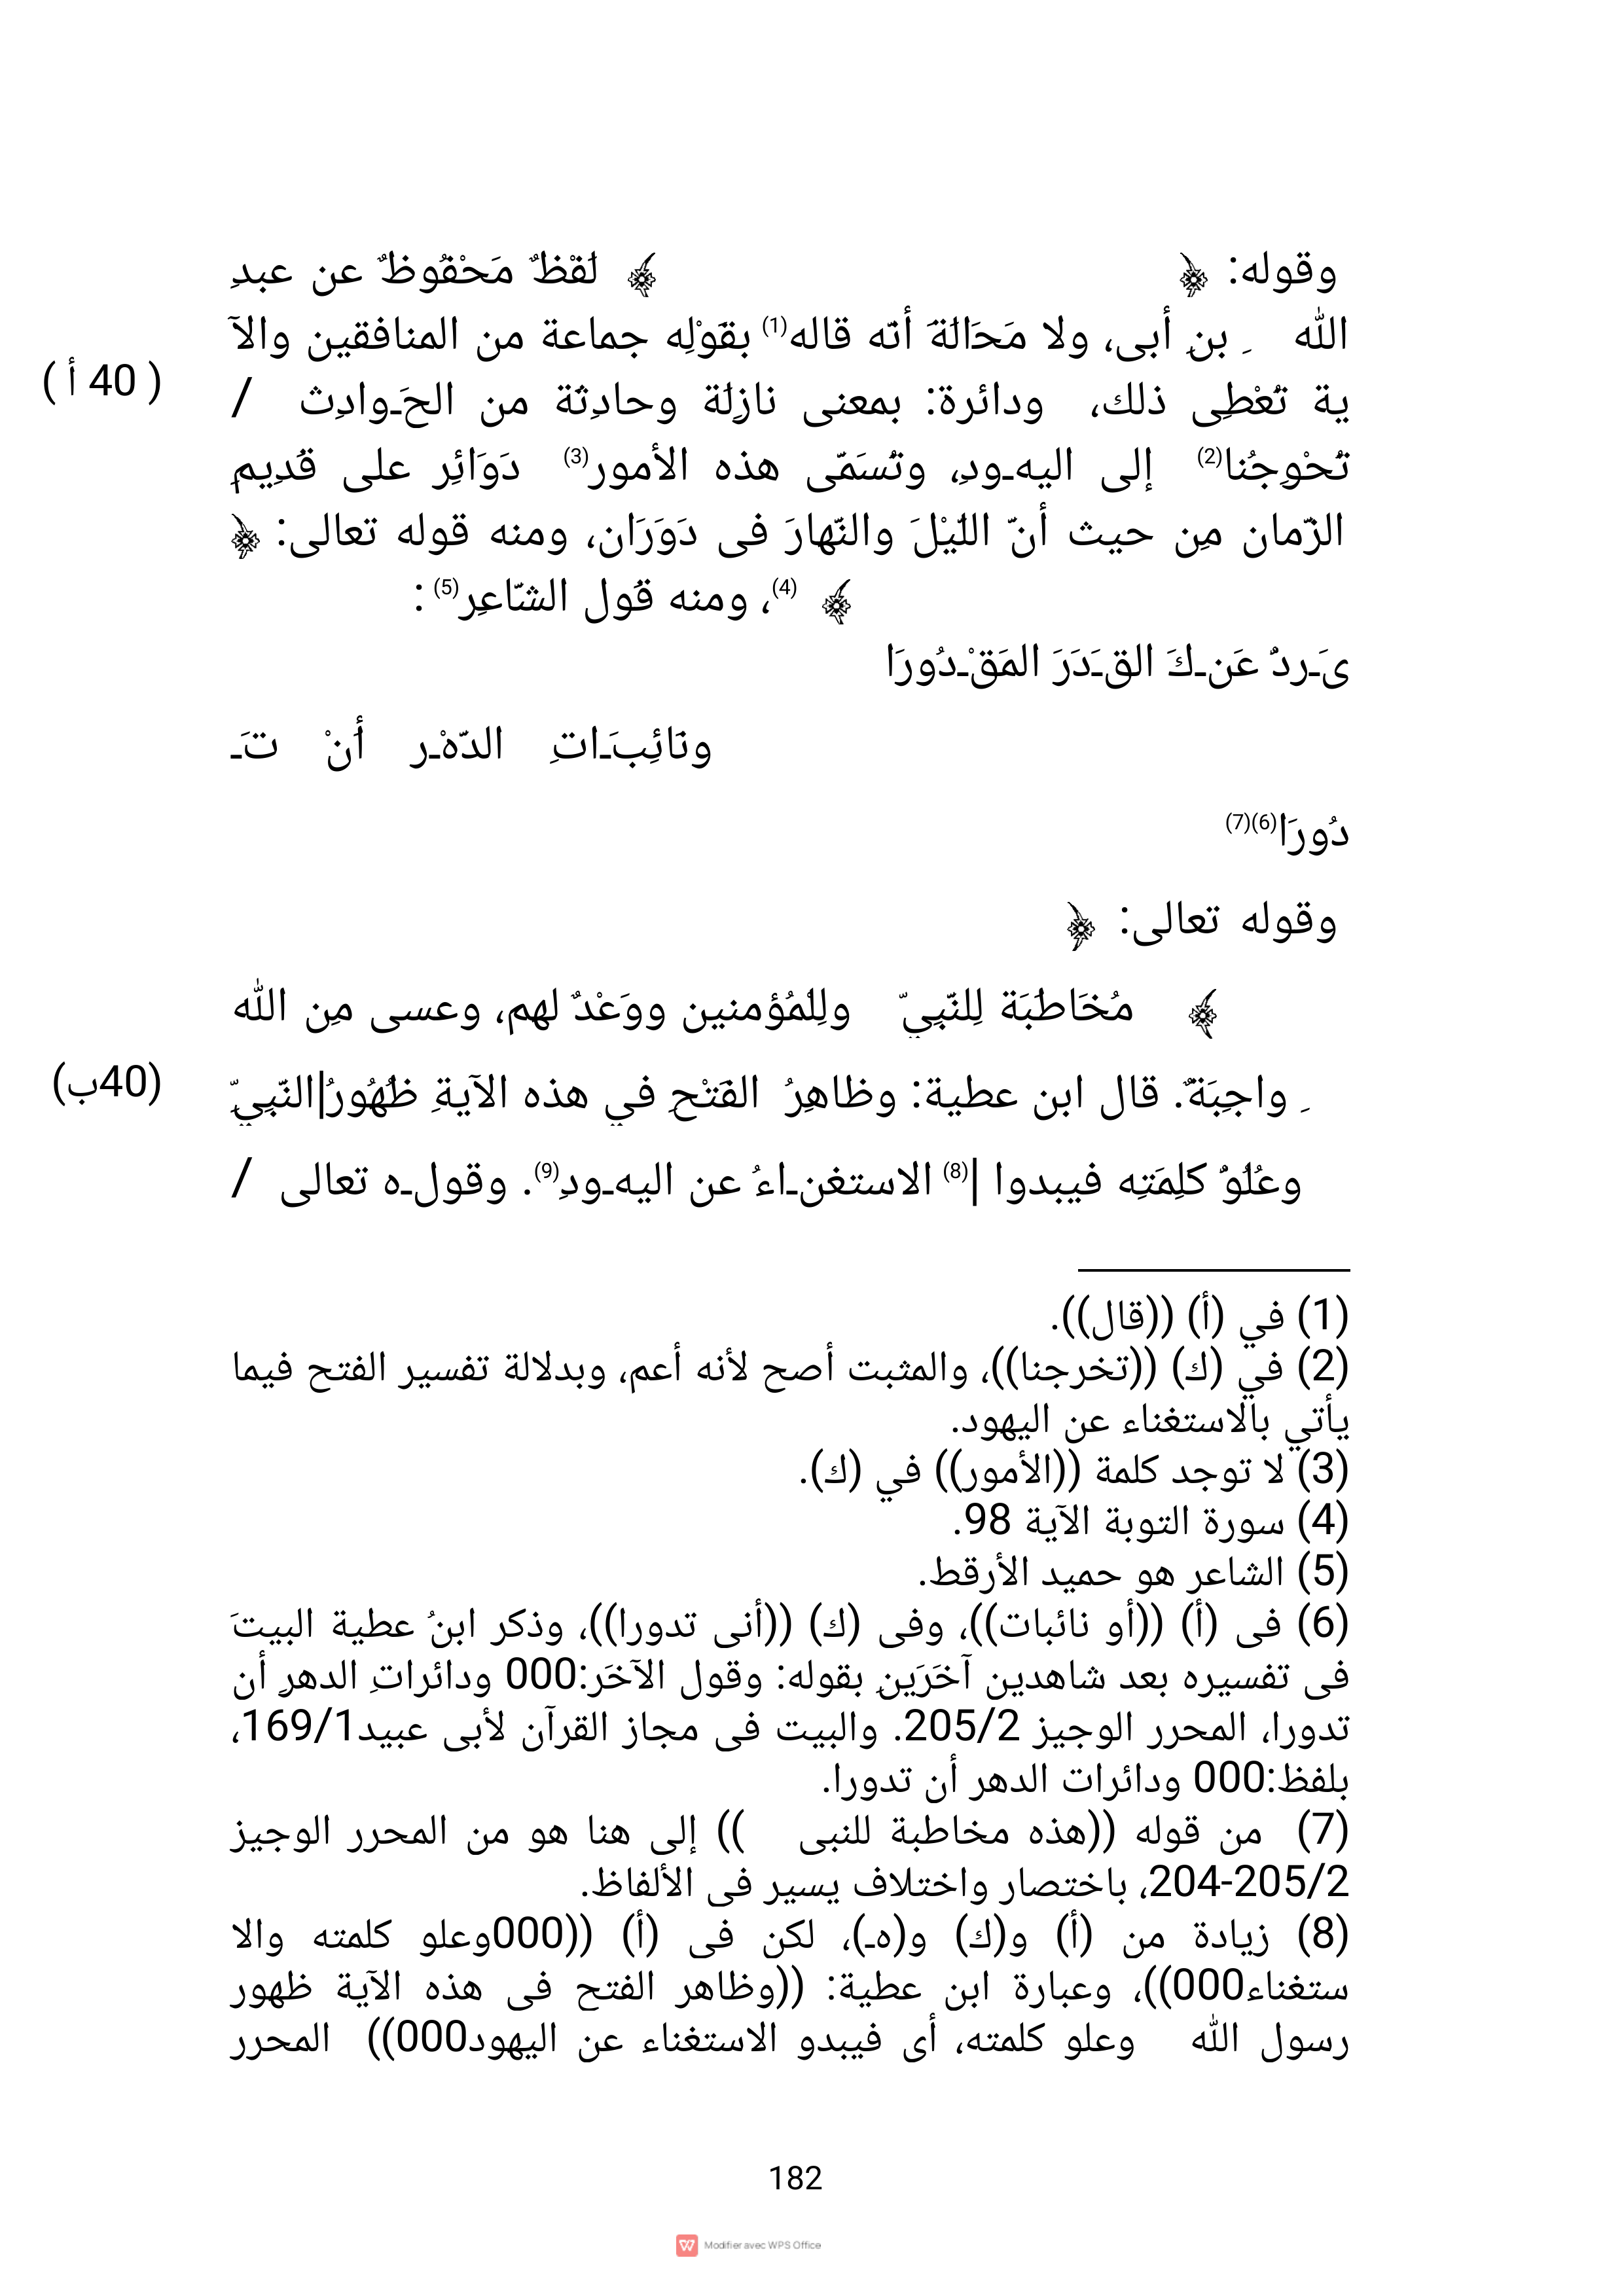 وقوله: ﴿ ﴾ لَفْظٌ مَحْفُوظٌ عن عبدِ
الله ِ بنِ أبى، ولا مَحَالَةَ أنّه قاله(1) بقَوْلِه جماعة من المنافقين والآ
( 40 أ )
ية تُعْطِى ذلك، ودائرة: بمعنى نازِلَة وحادِثَة من الحَـوادِث /
تُحْوِجُنا(2) إلى اليهـودِ، وتُسَمّى هذه الأمور(3) دَوَائِر على قَدِيمِ
الزّمان مِن حيث أنّ اللّيْلَ والنّهارَ فى دَوَرَان، ومنه قوله تعالى: ﴿
﴾ (4)، ومنه قَول الشّاعِر(5) :
ىَـردُ عَنـكَ القـَدَرَ المَقْـدُورَا
ونَائِبَـاتِ الدّهْـر أَنْ تَـ
دُورَا(6)(7)
وقوله تعالى: ﴿
﴾ مُخَاطَبَة لِلنّبِيّ ولِلْمُؤمنين ووَعْدٌ لهم، وعسى مِن الله
(40ب)
ِ واجِبَةٌ. قال ابن عطية: وظاهِرُ الفَتْحِ في هذه الآيةِ ظُهُورُ|النّبِيِّ
وعُلُوٌ كلِمَتِه فيبدوا |(8) الاستغنـاءُ عن اليهـودِ(9). وقولـه تعالى /
(1) في (أ) ((قال)).
(2) في (ك) ((تخرجنا))، والمثبت أصح لأنه أعم، وبدلالة تفسير الفتح فيما
يأتي بالاستغناء عن اليهود.
(3) لا توجد كلمة ((الأمور)) في (ك).
(4) سورة التوبة الآية 98.
(5) الشاعر هو حميد الأرقط.
(6) فى (أ) ((أو نائبات))، وفى (ك) ((أنى تدورا))، وذكر ابنُ عطية البيتَ
فى تفسيره بعد شاهدين آخَرَينِ بقوله: وقول الآخَر:000 ودائراتِ الدهرِ أن
تدورا، المحرر الوجيز 205/2. والبيت فى مجاز القرآن لأبى عبيد169/1،
بلفظ:000 ودائرات الدهر أن تدورا.
(7) من قوله ((هذه مخاطبة للنبى )) إلى هنا هو من المحرر الوجيز
204-205/2، باختصار واختلاف يسير فى الألفاظ.
(8) زيادة من (أ) و(ك) و(هـ)، لكن فى (أ) ((000وعلو كلمته والا
ستغناء000))، وعبارة ابن عطية: ((وظاهر الفتح فى هذه الآية ظهور
رسول الله وعلو كلمته، أى فيبدو الاستغناء عن اليهود000)) المحرر
182
Modifier avec WPS Office